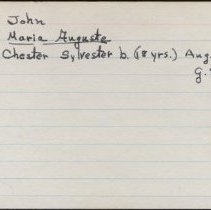 John
Maria Auguste
Chester Sylvester b. (8 yrs.) Aug.
g.